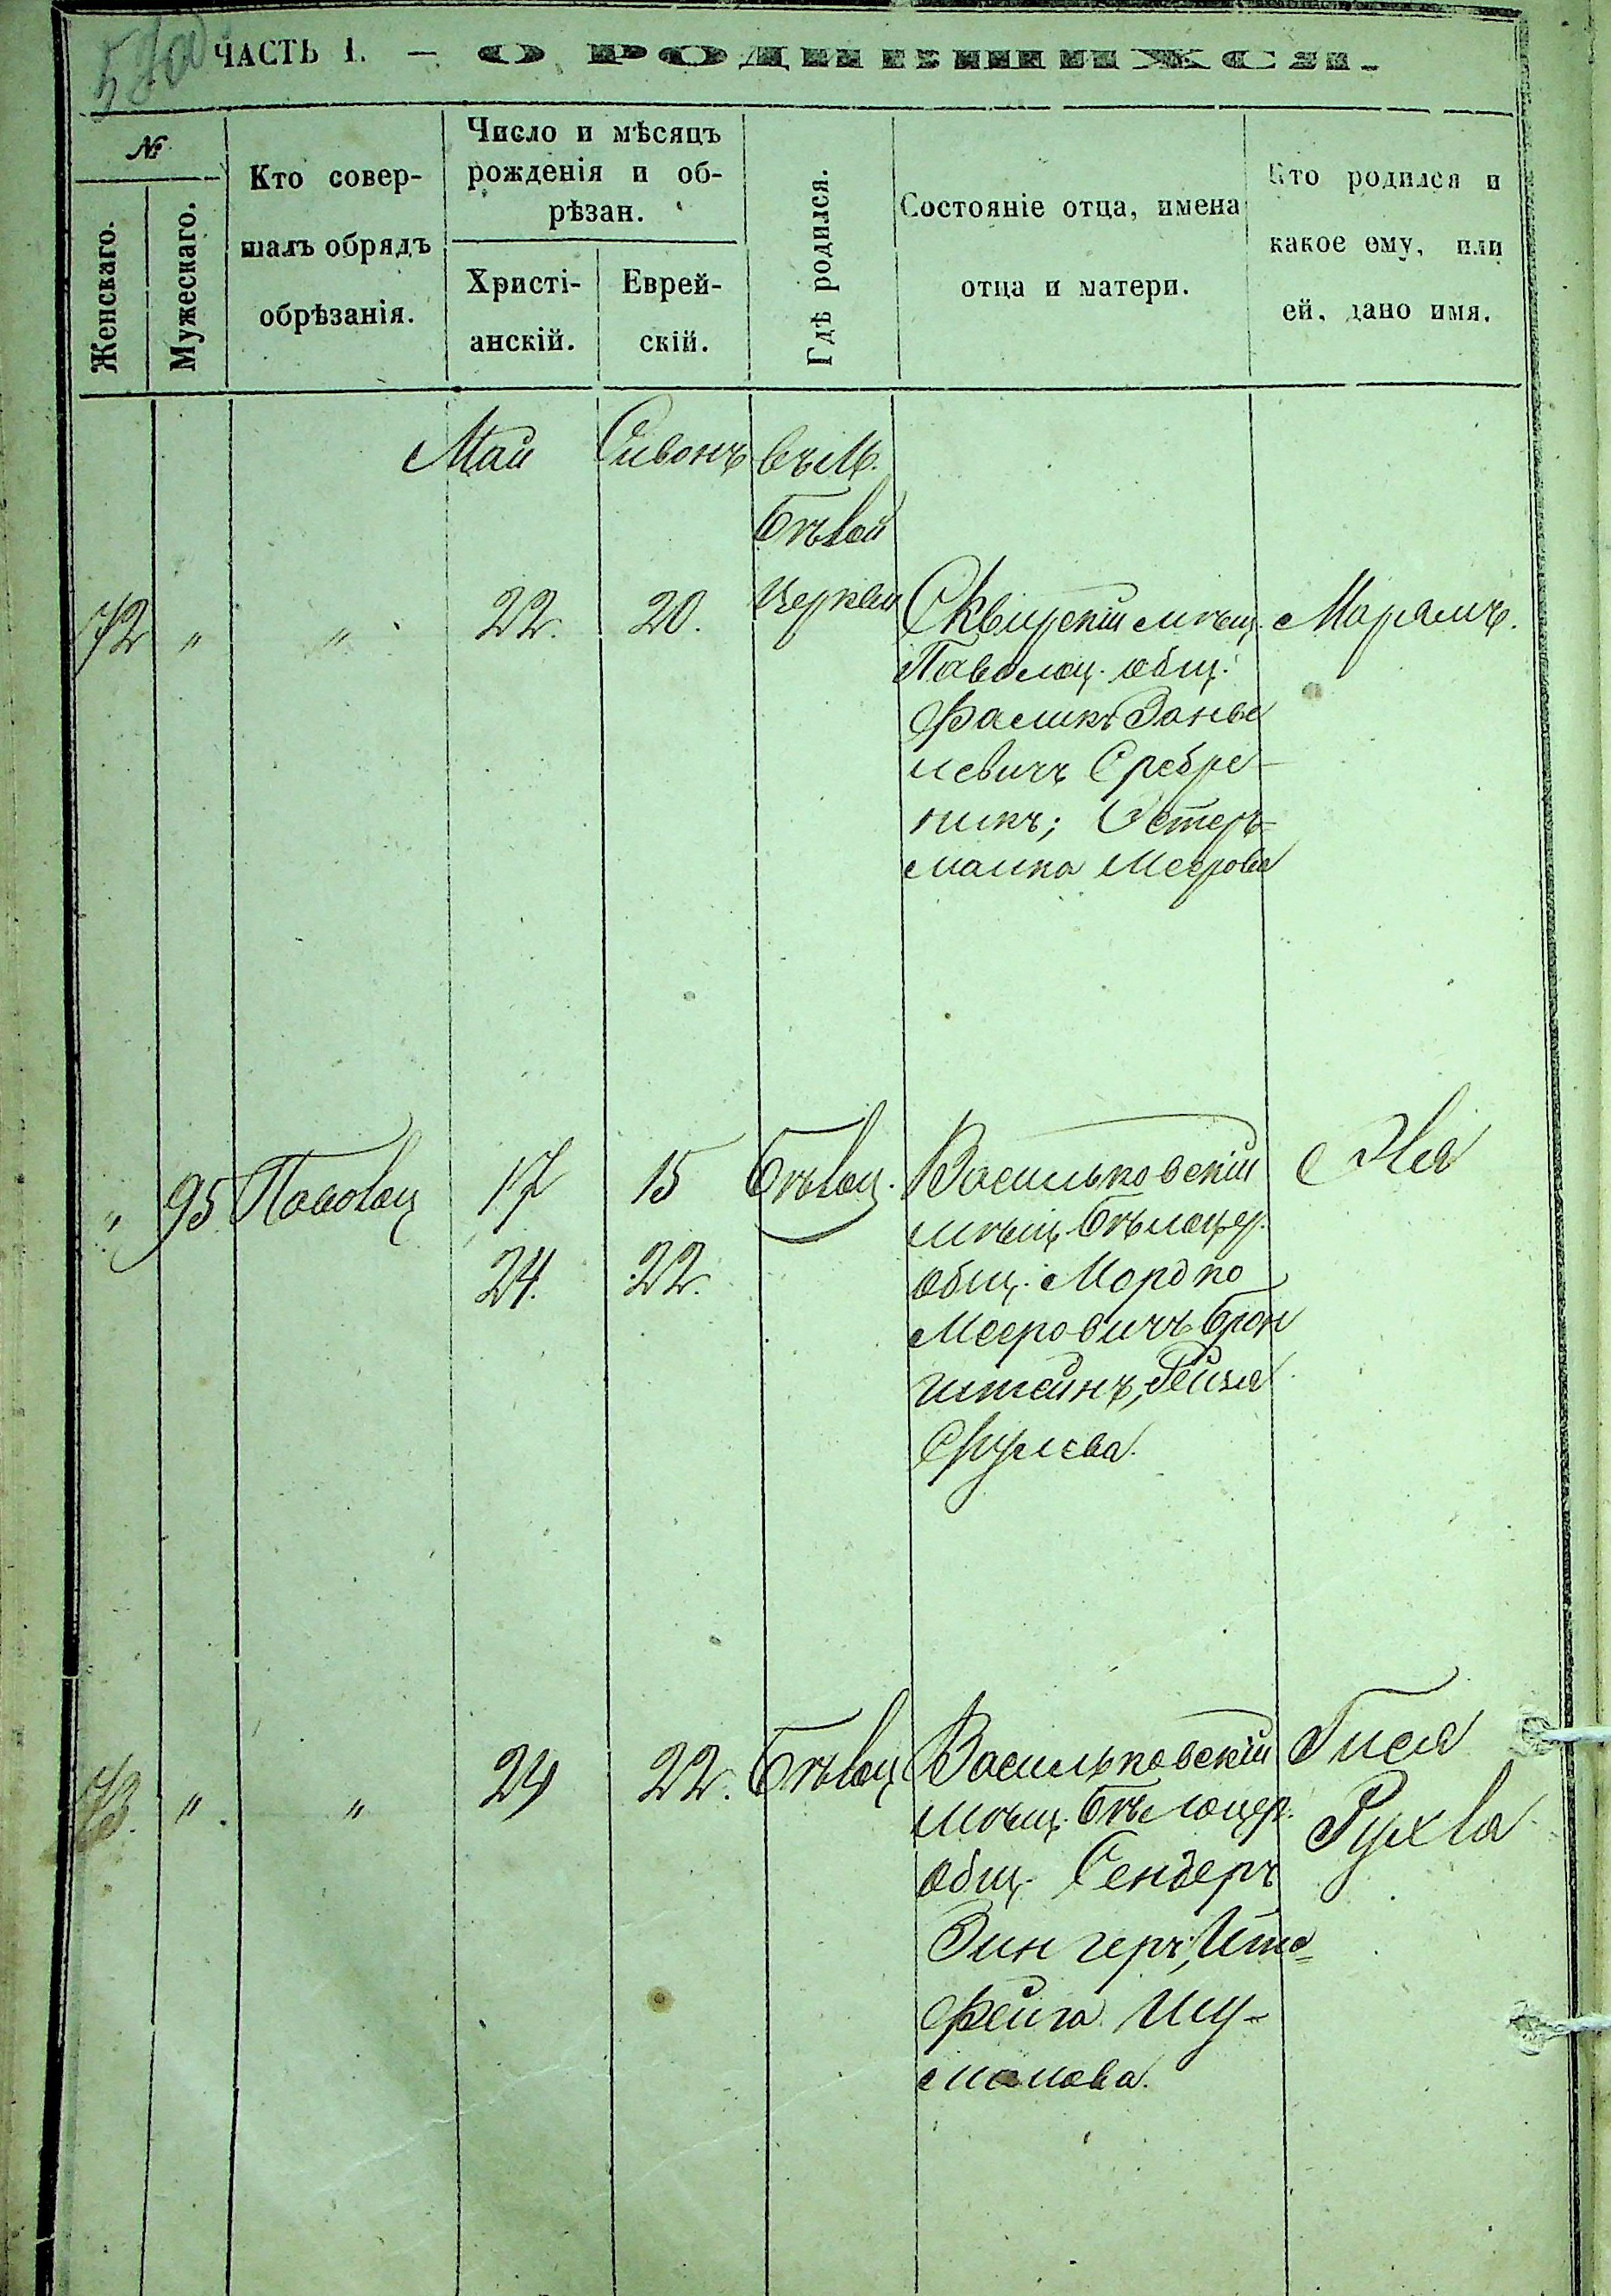 ЧАСТЬ I. — О РОДИВШИХСЯ.
№
Женскаго.
Мужескаго.
Кто совер-
шалъ обрядъ
обрѣзанія.
Число и мѣсяцъ
рожденія и об-
рѣзан.
Христі-
анскій.
Еврей-
скій.
Гдѣ родился.
Состояніе отца, имена
отца и матери.
Кто родился и
какое ему, или
ей, дано имя.
Май Сивонъ въ М.
Бѣлой
72 " " 22. 20. Церкви Сквирскій мѣщ. Марямъ.
Паволоц. общ.
Фаликъ Занве
левичъ Сребре-
никъ; Эстеръ-
малка Меерова
" 95 17 15 Бѣлоц. Васильковскій
мѣщ. Бѣлоцер.
24. 22. общ. Мордко
Мееровичъ Брон
штейнъ, Рейзя
Срулева.
73. " " 24 22. Бѣлоц Васильковскій Гися
мѣщ. Бѣлоцер. Рухля
общ. Сендеръ
Зингеръ, Ита=
Фейга Шу-
лимова.